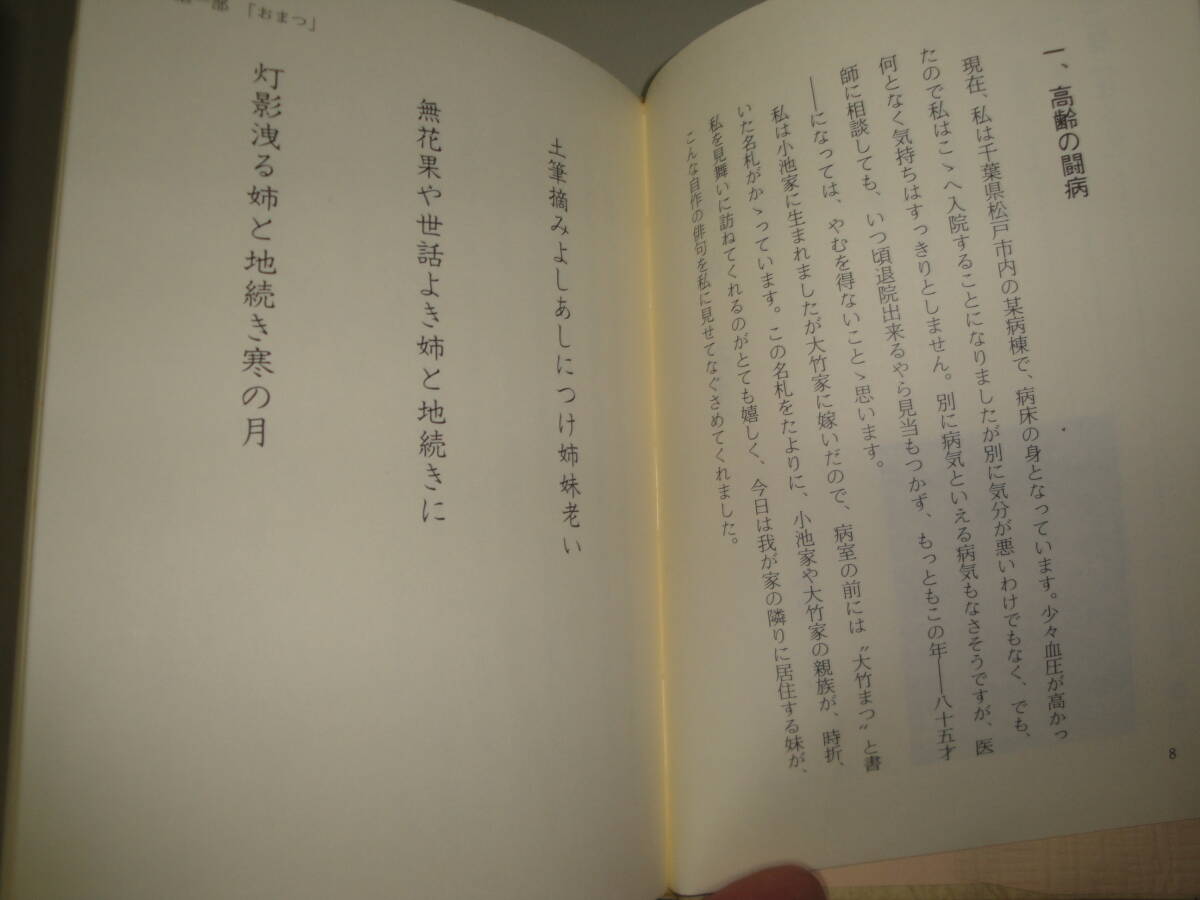 一、高齢の闘病
現在、私は千葉県松戸市内の某病棟で、病床の身となっています。少々血圧が高かっ
たので私はこゝへ入院することになりましたが別に気分が悪いわけでもなく、でも、
何となく気持ちはすっきりとしません。別に病気といえる病気もなさそうですが、医
師に相談しても、いつ頃退院出来るやら見当もつかず、もっともこの年――八十五才
――になっては、やむを得ないことゝ思います。
私は小池家に生まれましたが大竹家に嫁いだので、病室の前には〝大竹まつ〟と書
いた名札がかゝっています。この名札をたよりに、小池家や大竹家の親族が、時折、
私を見舞いに訪ねてくれるのがとても嬉しく、今日は我が家の隣りに居住する妹が、
こんな自作の俳句を私に見せてなぐさめてくれました。
8
一部 「おまつ」
土筆摘みよしあしにつけ姉妹老い
無花果や世話よき姉と地続きに
灯影洩る姉と地続き寒の月